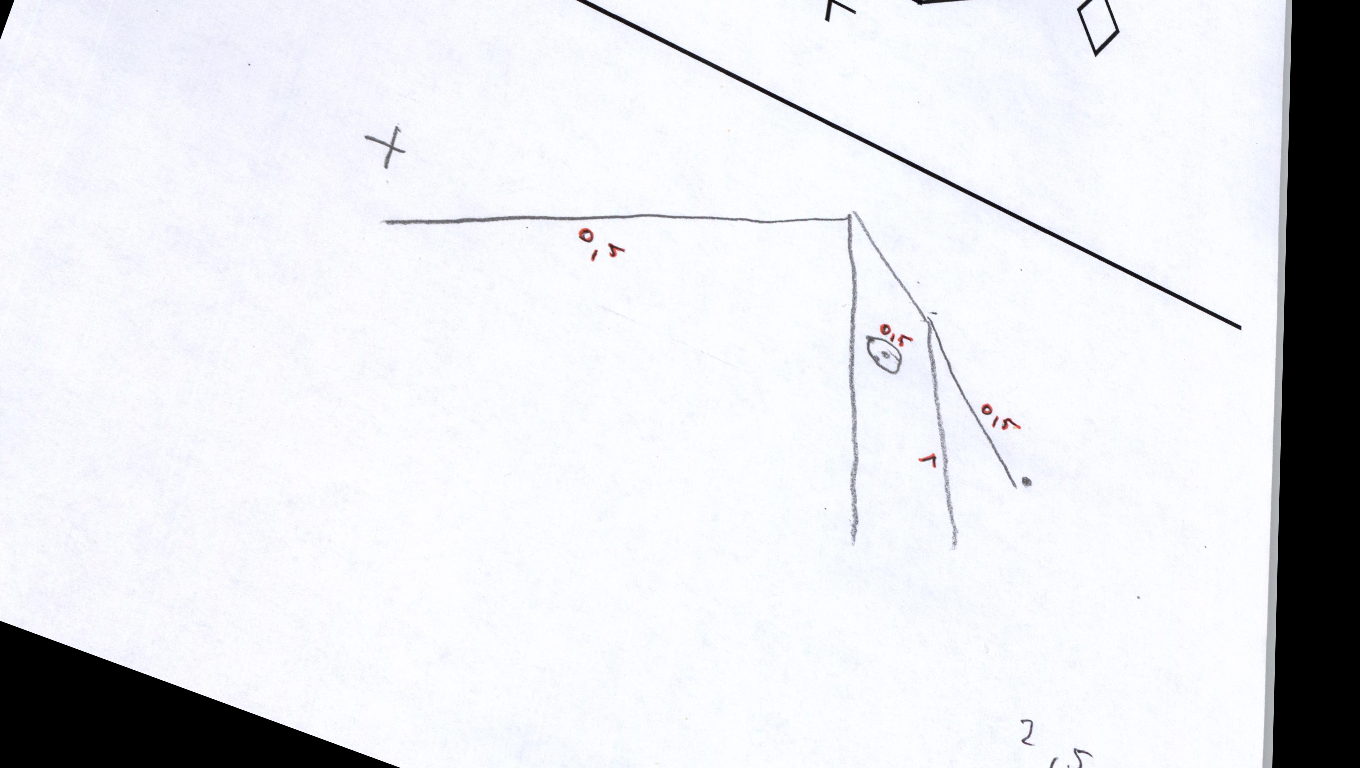 0,5
0,5
0,5
1
2,5